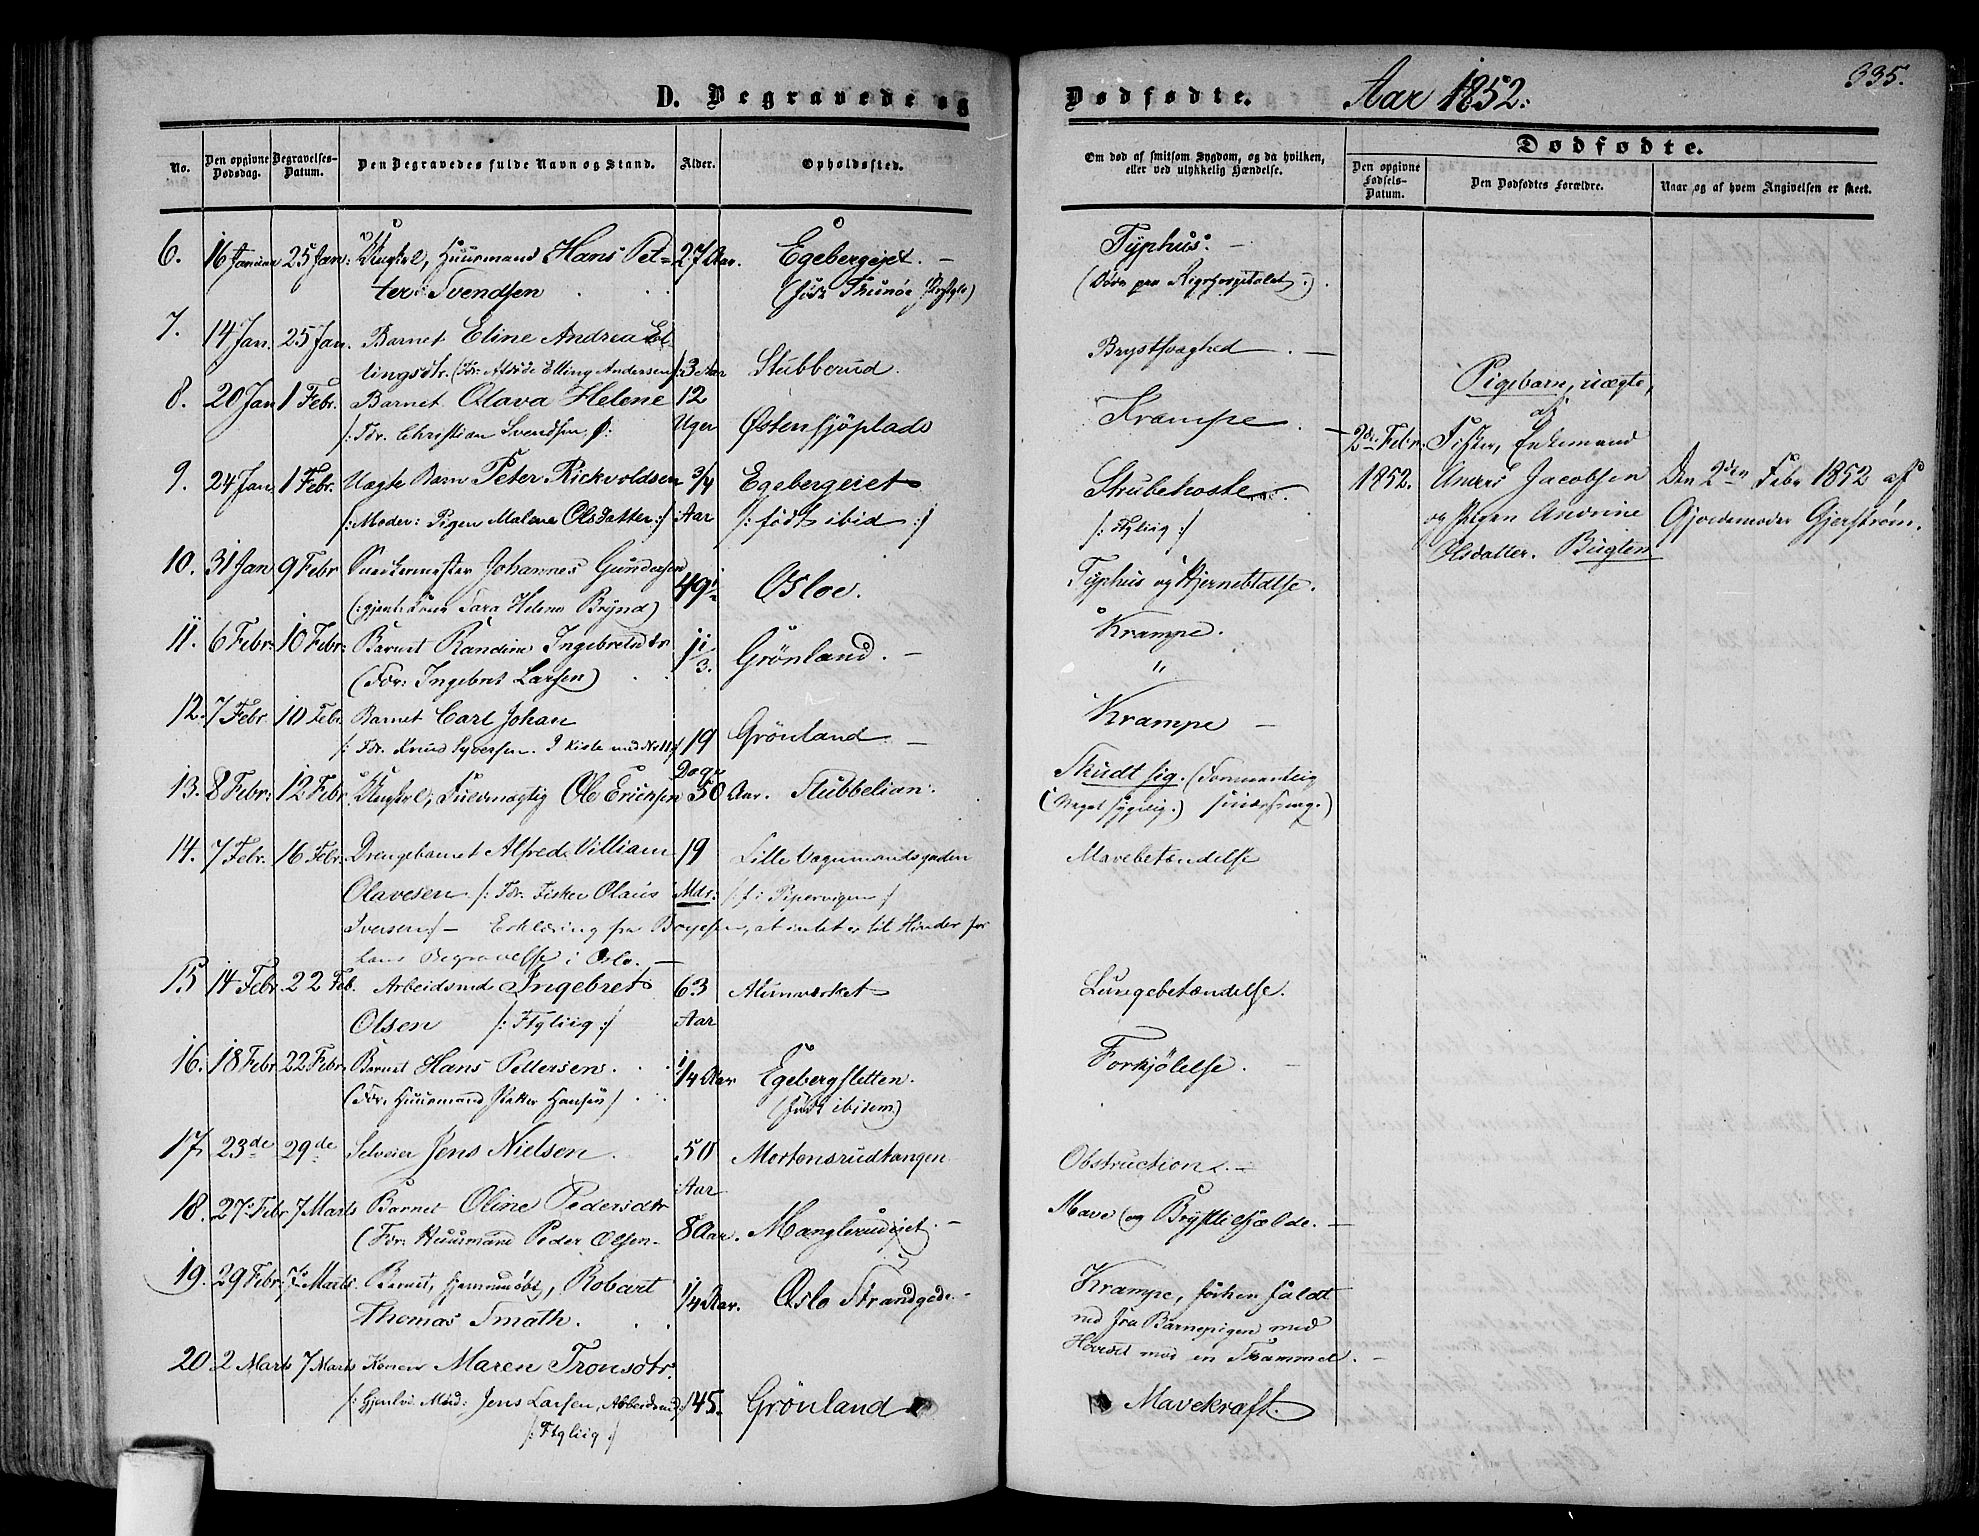 D. Begravede og
Dødfødte.
Aar 1852.
335.
No.
Den opgivne Dødsdag.
Begravelses-Datum.
Den Begravedes fulde Navn og Stand.
Alder.
Opholdssted.
Om død af smitsom Sygdom, og da hvilken,
eller ved ulykkelig Hændelse.
Dødfødte.
Den opgivne Fødsels-Datum.
Den Dødfødtes Forældre.
Naar og af hvem Angivelsen er skeet.
6. 16 Januar 25 Jan: Ungkl, Huusmand Hans Pet- 27 Aar. Egebergejet. Typhus.
ter Svendsen (født Thunöe (Døde paa Rigshospitalet.)
7. 14 Jan. 25 Jan. Barnet Eline Andrea El-
lingsdtr. (Fdr. Elling Andersen 3 Aar Stubberud. Brystsvaghed
8. 20 Jan 1 Febr. Barnet Olava Helene 12
/: Fdr. Christian Svendsen :/ Uger Østensjöplads Krampe
9. 24 Jan 1 Febr. Uægte Barn Peter Rickvoldsen 3/4 Egebergeiet Strubehoste
/: Moder: Pigen Malene Olsdatter :/ Aar /: født ibid :/ /: Ftgliig :/
10. 31 Jan 9 Febr Snedkermester Johannes Gundersen 49 Osloe. Typhus og Hjernebetændelse.
(: gjenlev. Sara Helene Brynd)
11. 6 Febr: 10 Febr: Barnet Randine Ingebretsdtr 1 1/3. Grönland. Krampe.
(Fdr: Ingebret Larsen) "
12. 7 Febr. 10 Febr. Barnet Carl Johan
/: Fdr. Knud Syversen. I Kiste med 19 Grönland Krampe
Dage
13. 8 Febr: 12 Febr. Ungkl, Fuldmægtig Ole Erichsen 50 Aar. Stubbelian. Skudt sig.
(Meget sygelig.)
14. 7 Febr. 16 Febr. Drengebarnet Alfred Villiam 19 Lille Vognmandsgaden Mavebetændelse
Olavesen /: Fdr. Fisker Olaus Mdr: /: f. i Pipervigen :/
Iversen :/ - Erklæring fra Boyesen, at intet er til Hinder for
hans Begravelse i Oslo.
15 14 Febr. 22 Feb. Arbeidsmd Ingebret 63 Alunværket Lungebetændelse.
Olsen /: Ftgliig :/ Aar
16. 18 Febr 22 Febr. Barnet Hans Pettersen 1/4 Aar Egebergsletten. Forkjölelse.
(Fdr. Huusmand Petter Hansen) (født ibidem)
17. 23de 29de Selveier Jens Nielsen 50 Mortensrudtangen Obstruction
Aar
18. 27 Febr 7 Marts Barnet Oline Pedersdtr
(Fdr: Huusmand Peder Olsen 8 Aar. Manglerudejet. Mave og Bryst
19. 29 Febr. 7 Marts. Barnet, hjemmedøbt, Robart 1/4 Aar. Oslo Strandgade. Krampe, forhen faldt
Thomas Smath. ned fra Barnepigen med
Hovedet mod en Skammel.
20 2 Marts 7 Marts Konen Maren Tronsdtr.
/: Gjenlev. Mand: Jens Larsen, Arbeidsmd. 45. Grönland Mavekræft.
/: Ftgliig :/
Pigebarn, uægte,
af
2den Febr. Fisker, Enkemand
1852. Anders Jacobsen Den 2den Febr 1852 af
og Pigen Andrine Gjordemoder Gjerstrøm.
Olsdatter. Bugten